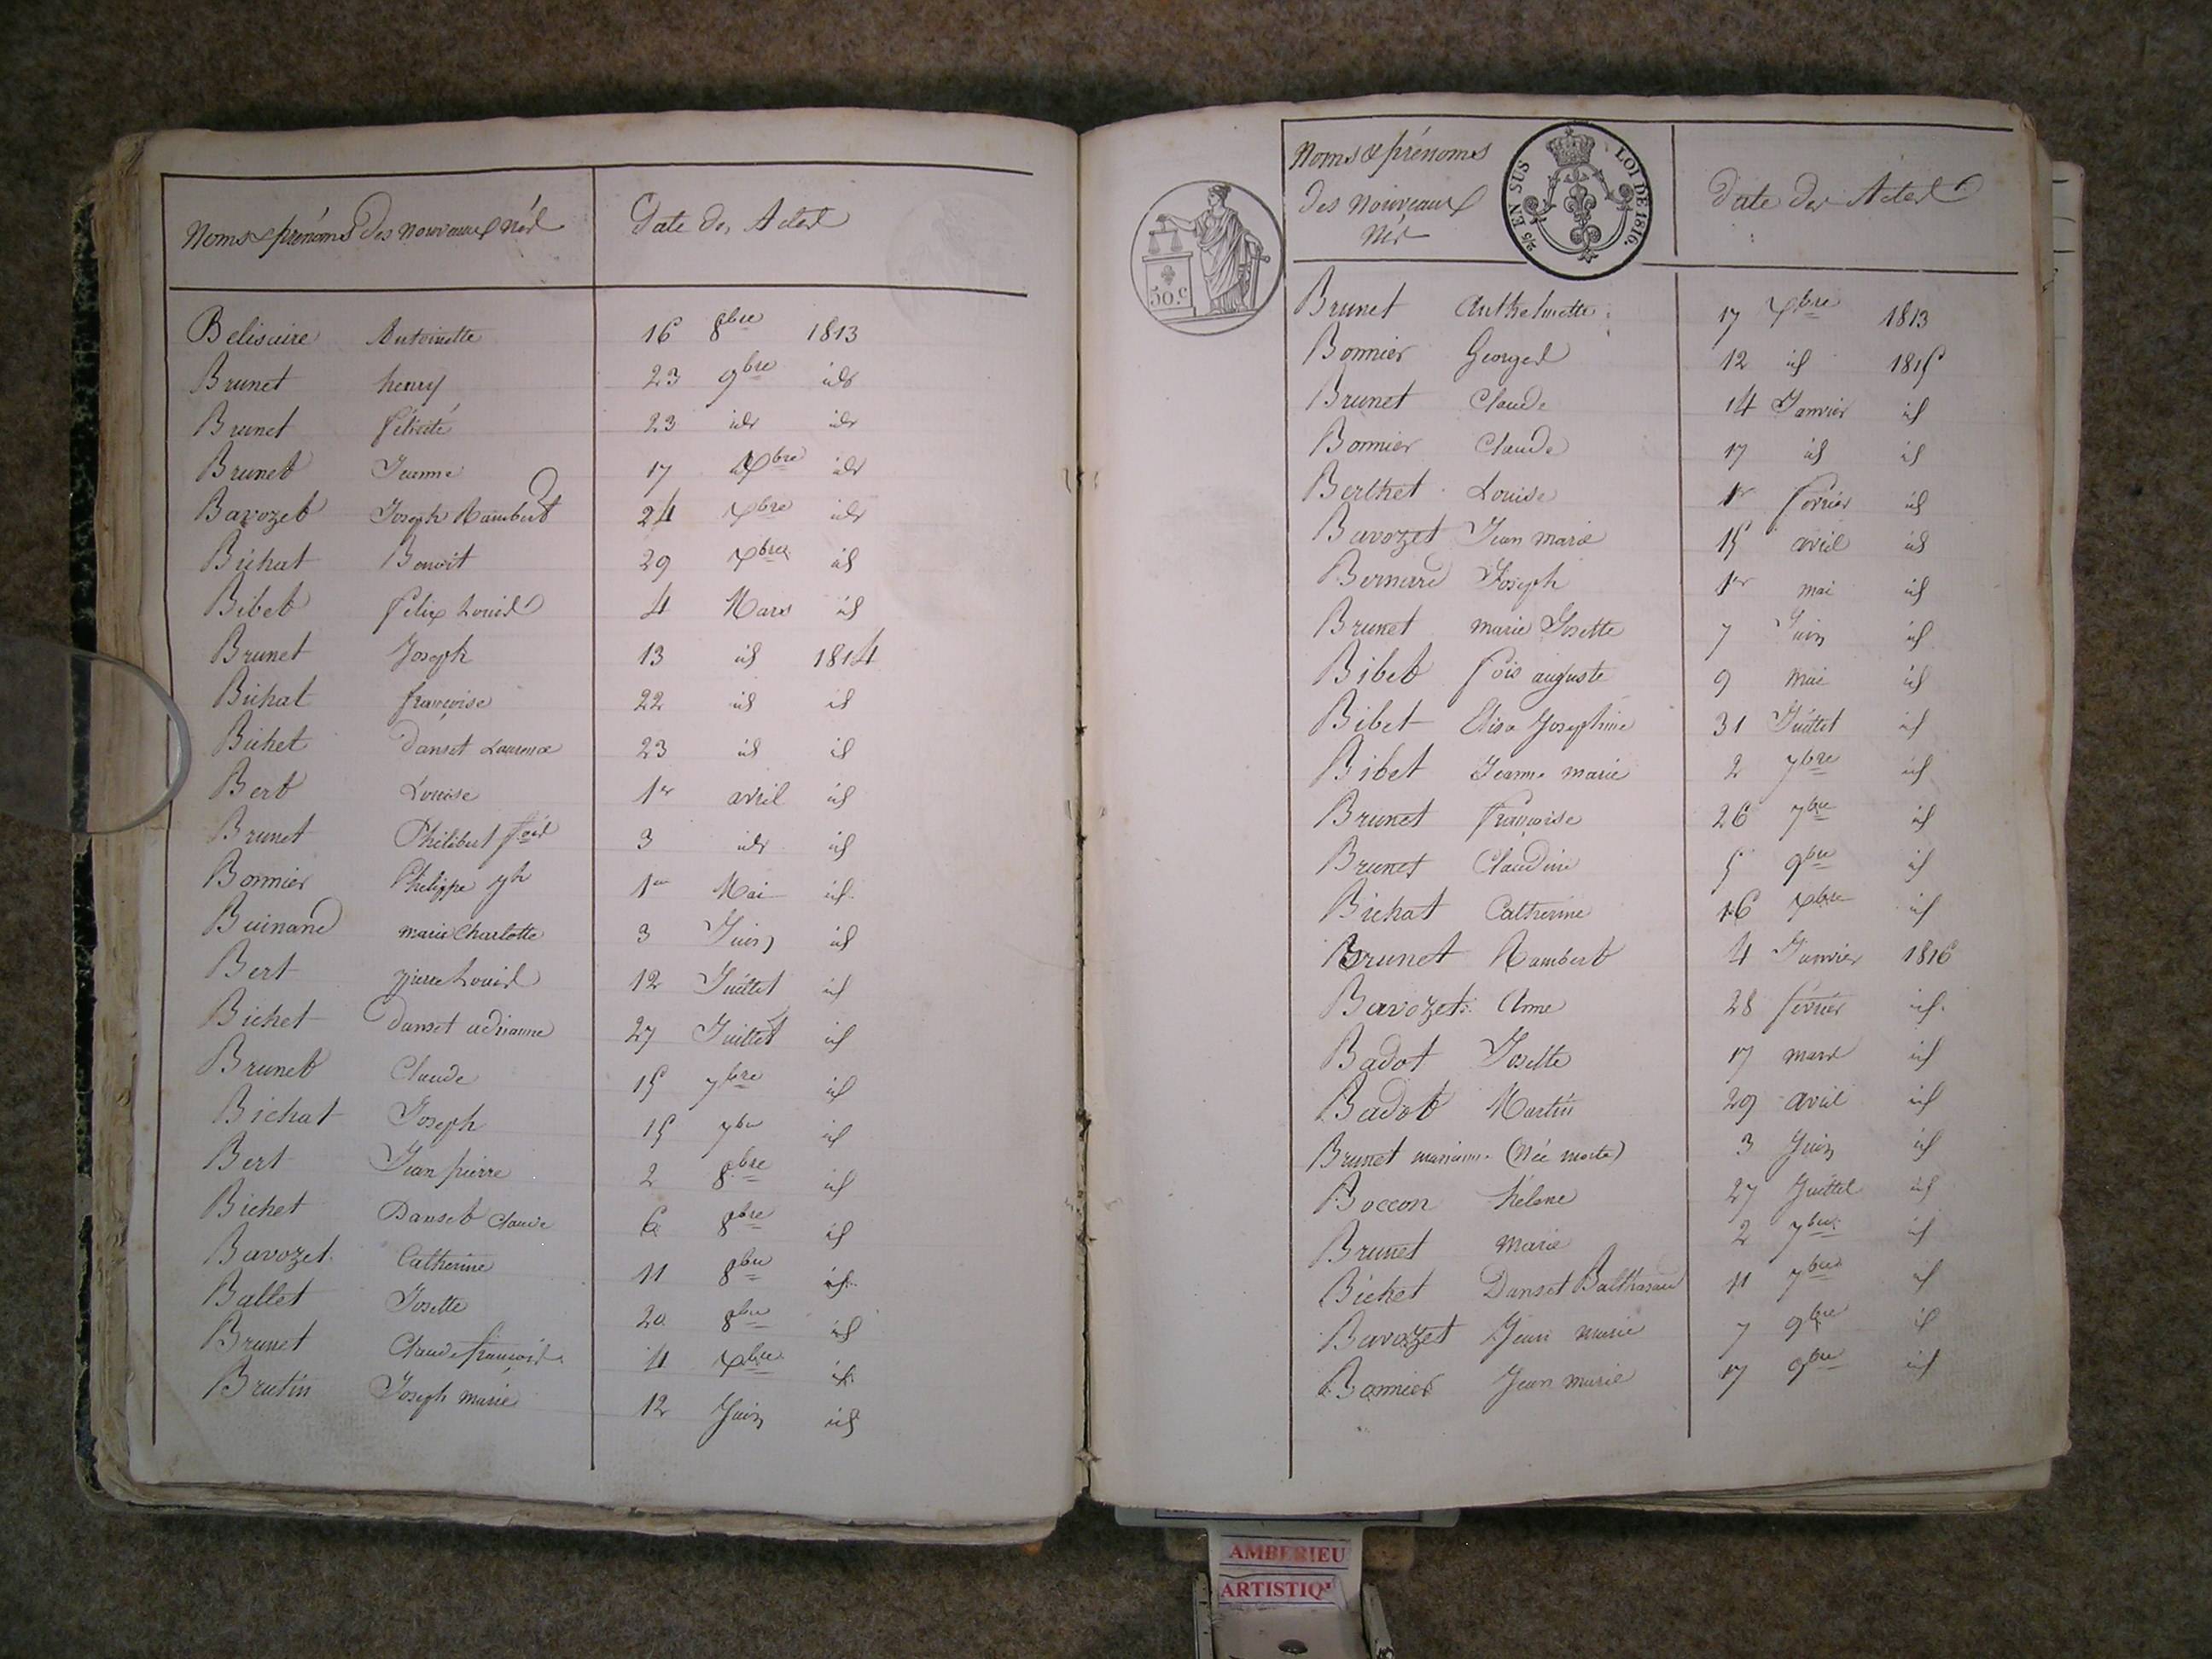 Noms & prénoms des nouveaux nés
Date des Actes
Belisaire Antoinette 16 8bre 1813
Brunet henry 23 9bre idr
Brunet félicité 23 idr idr
Brunet Jeanne 17 Xbre idr
Bavozet Joseph Rambert 24 Xbre idr
Bichat Benoit 29 Xbre id
Bibet félix Louis 4 Mars id
Brunet Joseph 13 id 1814
Bichat françoise 22 id id
Bichet danset Laurence 23 id id
Bert Louise 1er avril id
Brunet Philibert fois 3 idr id
Bonnier Philippe jph 1er Mai id
Buinand marie Charlotte 3 Juin id
Bert pierre Louis 12 Juillet id
Bichet danset adrianne 27 Juillet id
Brunet Claude 15 7bre id
Bichat Joseph 15 7bre id
Bert Jean pierre 2 8bre id
Bichet Danset Claude 6 8bre id
Bavozet Catherine 11 8bre id
Ballet Josette 20 8bre id
Brunet Claude françois 4 Xbre id
Brutin Joseph marie 12 Juin id
Noms & prénoms
des nouveaux
nés
2/5 EN SUS LOI DE 1816.
50.c
date des Actes
Brunet Anthelmette 17 Xbre 1813
Bonnier Georges 12 id 1815
Brunet Claude 14 Janvier id
Bonnier Claude 17 id id
Berthet Louise 1er février id
Bavozet Jean marie 15 avril id
Bernard Joseph 1er mai id
Brunet marie Josette 7 Juin id
Bibet fois auguste 9 mai id
Bibet Elisa Josephine 31 Juillet id
Bibet Jeanne marie 2 7bre id
Brunet françoise 26 7bre id
Brunet Claudine 5 9bre id
Bichat Catherine 16 Xbre id
Brunet Rambert 4 Janvier 1816
Bavozet Anne 28 février id
Badot Josette 17 mars id
Badot Martin 29 avril id
Brunet marianne (Née morte) 3 Juin id
Boccon hélene 27 Juillet id
Brunet Marie 2 7bre id
Bichet Danset Balthasard 11 7bre id
Bavozet Jean marie 7 9bre id
Bonnier Jean marie 17 9bre id
AMBERIEU
ARTISTIQ